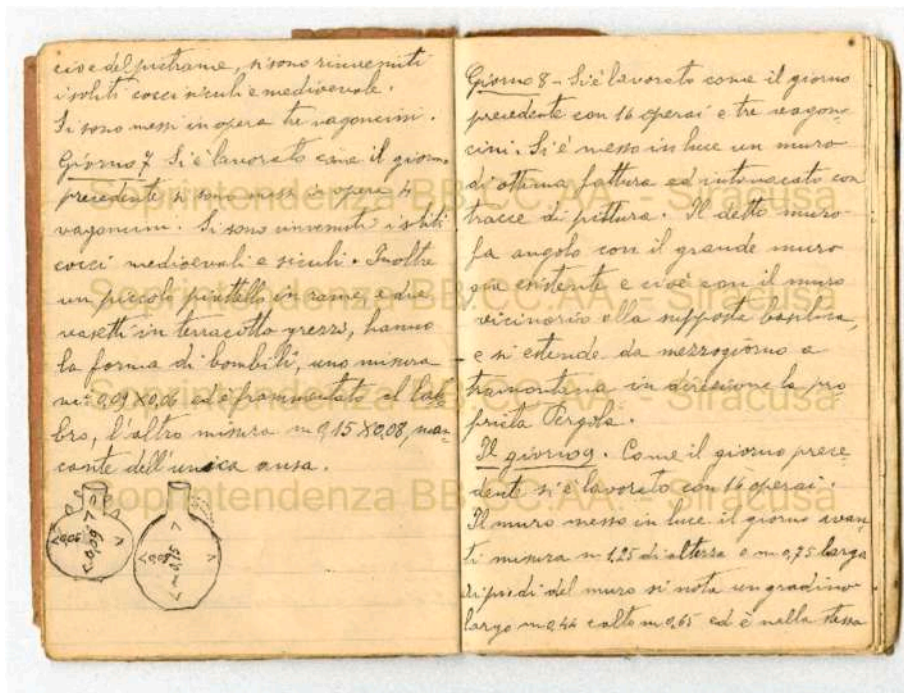 cioè del pietrame, si sono rinvenuti
i soliti cocci siculi e medioevale.
Si sono messi in opera tre vagoncini.
Giorno 7 Si è lavorato come il giorno
precedente si sono messi in opera 4
vagoncini. Si sono rinvenuti i soliti
cocci medioevali e siculi. Inoltre
un piccolo piattello in rame, e due
vasetti in terracotta grezzi, hanno
la forma di bombili, uno misura
m: 0,09 X 0,06 ed è frammentato al lab
bro, l'altro misura m 0,15 X 0,08, man
cante dell'unica ansa.
0,06
0,09
m 0,15
Giorno 8 - Si è lavorato come il giorno
precedente con 16 operai e tre vagon
cini. Si è messo in luce un muro
di ottima fattura ed intonacato con
tracce di pittura. Il detto muro
fa angolo con il grande muro
già esistente e cioè con il muro
viciniorio alla supposta basilica,
e si estende da mezzogiorno a
tramontana in direzione la pro
prietà Pergola.
Il giorno 9. Come il giorno prece
dente si è lavorato con 16 operai.
Il muro messo in luce il giorno avan
ti misura m 1,25 di altezza e m 0,75 largo
Ai piedi del muro si nota un gradino
largo m 0,44 e alto m 0,65 ed è nella stessa
Soprintendenza BB.CC.AA. - Siracusa
Soprintendenza BB.CC.AA. - Siracusa
Soprintendenza BB.CC.AA. - Siracusa
Soprintendenza BB.CC.AA. - Siracusa